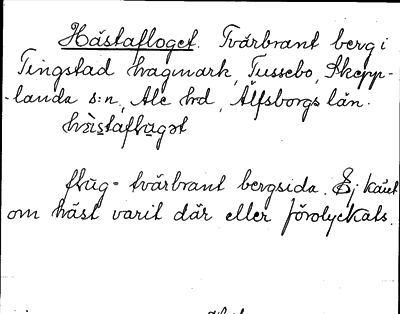 Hästafloget. Tvärbrant berg i
Tingstad hagmark, Tussebo, Skepp-
-landa s:n, Ale hd, Älfsborgs län.
hästaflugət
flug- tvärbrant bergsida. Ej känt
om häst varit där eller förolyckats.